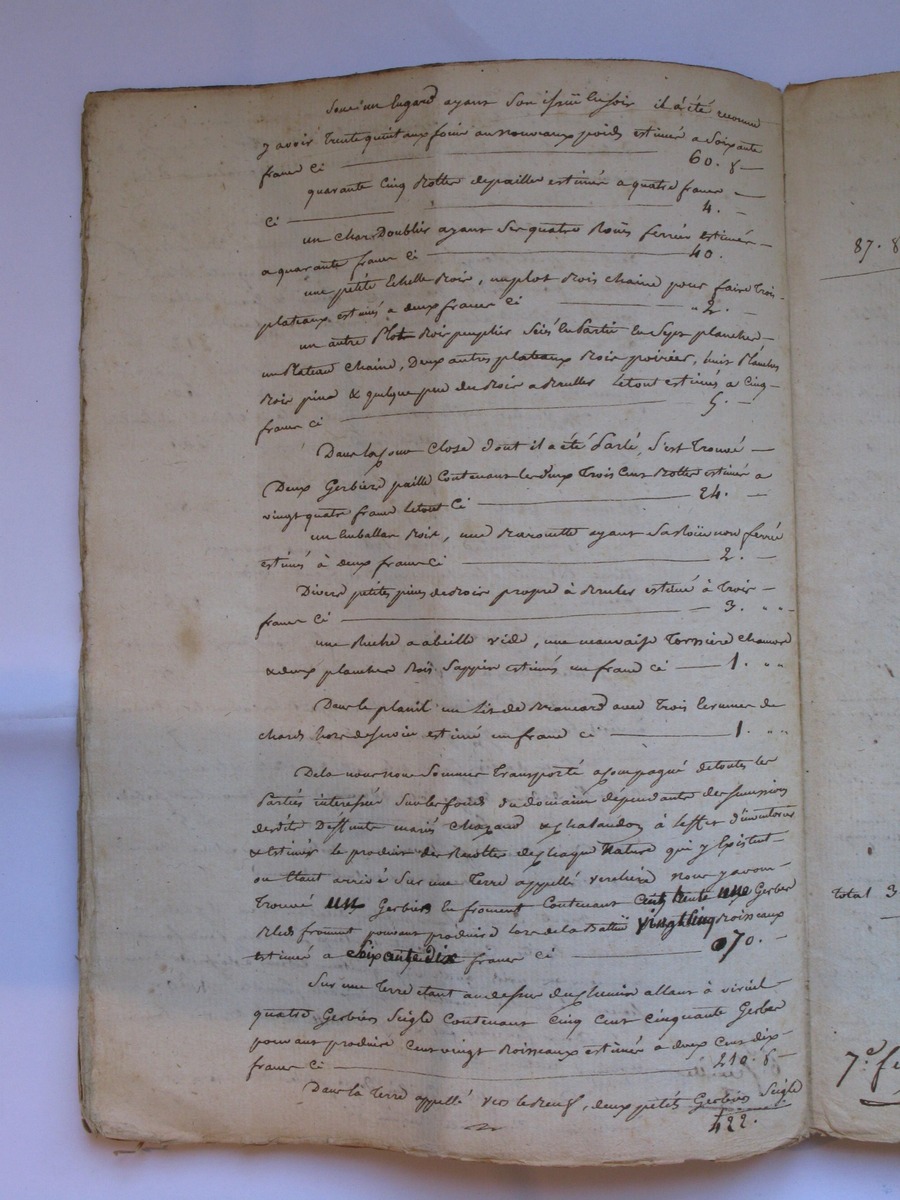 Sous un engard ayant son issuë au soir il a été reconnu
y avoir Trente quintaux foin au nouveaux poids estimé a Soixante
franc Ci 60. 8
quarante Cinq Bottes de pailles estimée a quatre franc
Ci 4.
un chars Doublis ayant Ses quatre Rouës ferrée estimée
a quarante franc Ci 40.
une petite Echelle Bois, un plot Bois chaine pour faire Trois
plateaux estimés a deux franc Ci 2.
un autre Plot Bois peuplier Sciés En Partie En Sept planches
un Plateau Chaine, Deux autres plateaux Bois poiriés, huit Planches
Bois pins & quelque peu du Bois a Brulles Le tout estimés a Cinq
franc Ci 5.
Dans la Cour Close dont il a été Parlé, s'est Trouvé
Deux Gerbiers paille Contenant les deux Trois Cent Bottes estimé a
vingt quatre franc Le tout Ci 24.
un Emballan Bois, une Barouette ayant Sa Roüe non ferré
estimés à deux franc Ci 2.
Divers petites pieces de Bois propre à Brules estimé à Trois
franc Ci 3. " "
une Ruche a abeille vide, une mauvaise Torsiere Chanvre
& deux planches Bois Sappin estimés un franc Ci 1. " "
Dans le planil un Lit de Brancard avec Trois
chards hors de service estimé un franc Ci 1. " "
De la nous nous Sommes Transporté acompagné de toutes les
Parties interessé Sur les fonds du domaine dépendante des Successions
desdits Deffunts mariés Chazaud & Chabaudon à Leffet d'inventorier
& estimer le produit des Recoltes de chaque Nature qui y Existent
ou Etant arrivé Sur une Terre appellé verchere nous y avons
Trouvé un Gerbier En froment Contenant Cent trente une Gerbes
Bled froment pouvant produire Lors de la Batture vingt Cinq Boisseaux
estimé a Soixante Dix franc Ci 70.
Sur une Terre étant au dessus du Chemin allant à virieu
quatre Gerbiers Seigle Contenant Cinq Cent Cinquante Gerbes
pouvant produire Cent vingt Boisseaux estimés a deux Cent dix
franc Ci 210. 8
Dans la Terre appellé vers le Beuf, deux petits Gerbiers Seigle
422.
87. 8
total 3
7.e fe